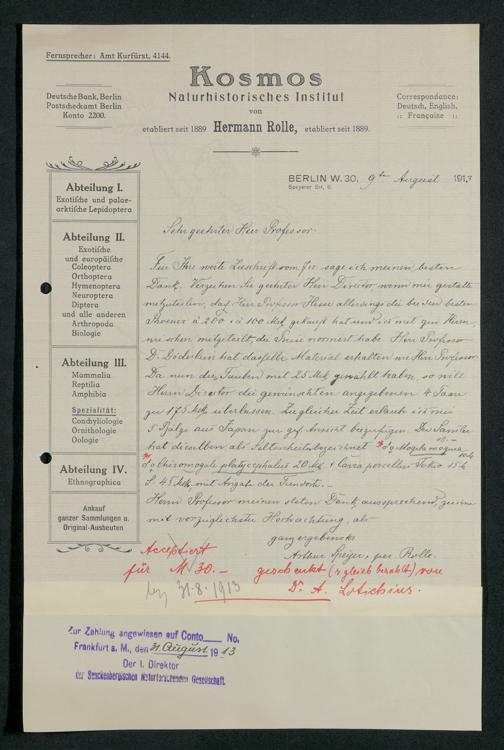 Fernsprecher: Amt Kurfürst, 4144.
Kosmos
Naturhistorisches Institut
von
etabliert seit 1889 Hermann Rolle, etabliert seit 1889.
Deutsche Bank, Berlin
Postscheckamt Berlin
Konto 2200.
Correspondance:
Deutsch, English,
:: Française ::
BERLIN W. 30, 9ten August 1913
Speyerer Str. 8.
Abteilung I.
Exotische und palae-
arktische Lepidoptera
Abteilung II.
Exotische
und europäische
Coleoptera
Orthoptera
Hymenoptera
Neuroptera
Diptera
und alle anderen
Arthropoda
Biologie
Abteilung III.
Mammalia
Reptilia
Amphibia
Spezialität:
Conchyliologie
Ornithologie
Oologie
Abteilung IV.
Ethnographica
Ankauf
ganzer Sammlungen u.
Original-Ausbeuten
Sehr geehrter Herr Professor
Für Ihre werte Zuschrift vom sage ich meinen besten
Dank. Verzeihen Sie geehrter Herr Director, wenn mir gestatte
mitzuteilen, das Herr Professor allerdings die beiden besten
à 200 + à 100 Mk gekauft hat und ich mit
schon mitgeteilt, die normiert habe Herr Professor
Dr. Döderlein hat dasselbe Material erhalten wie Herr Professor
Da nun die mit 25 Mk gewählt haben, so will
Herrn Director die gewünschten angegebenen 4 Paar
zu 175 Mk überlassen. Zu gleicher Zeit erlaube ich mir
5 Bälge aus Japan zur gef. Ansicht beizufügen. Der Sammler
hat dieselben als Seltenheiten bezeichnet Mogula mogura
platycephalus 20 Mk + Cavia porcellus Tokio 15 Mk
S. 45 Mk. mit Angabe der Fundorte.
Herrn Professor meinen steten Dank aussprechend, zeichne
mit vorzüglichster Hochachtung, als
ganz ergebenst
Arthur Speyer, per Rolle.
Acceptiert
für M 30.- geschenkt (+ gleich bezahlt) von
Dr. A. Lotichius.
bez 31.8.1913
Zur Zahlung angewiesen auf Conto No.
Frankfurt a. M., den 31. August 1913
Der I. Direktor
der Senckenbergischen Naturforschenden Gesellschaft.